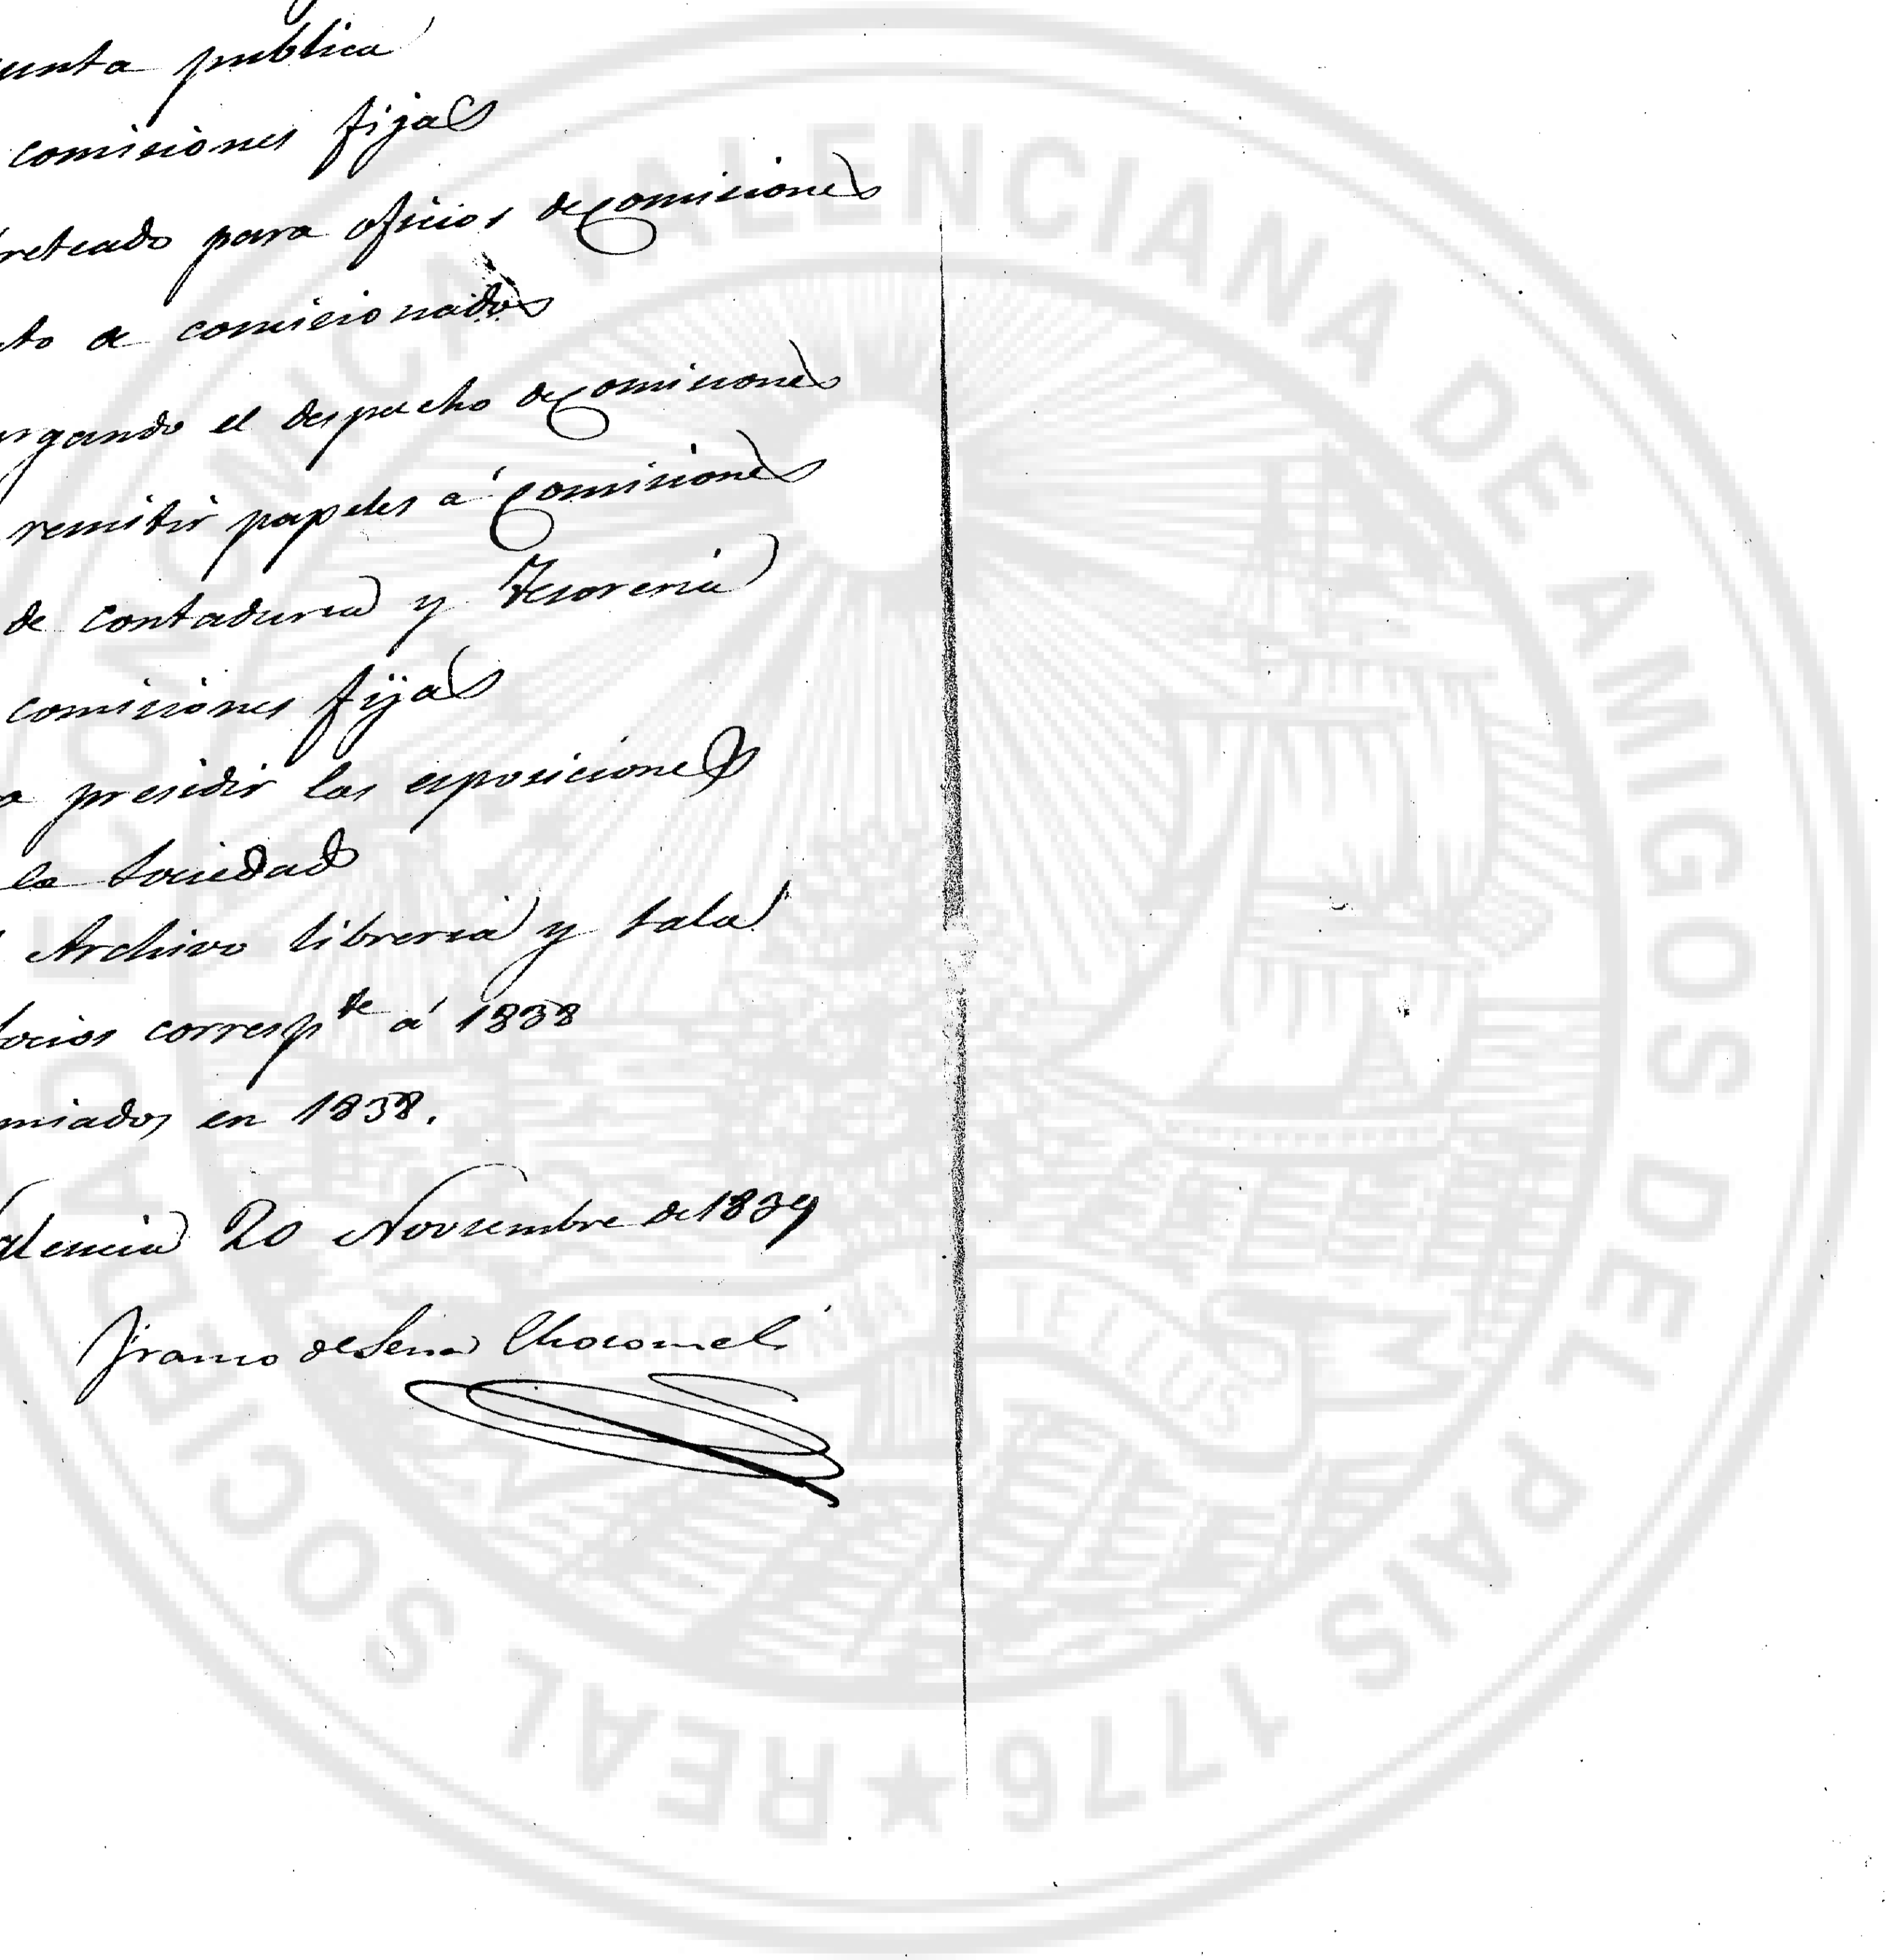 unta publica
comisiones fijas
reteado para oficios de comisiones
to a comisionados
rgando el despacho de comisiones
remitir papeles á comisiones
de contaduria y Tesoreria
comisiones fijas
a presidir las esposiciones
la Sociedad
Archivo libreria y sala
socios correspte á 1838
miados en 1838.
alencia 20 Noviembre de 1839
Franco de Sena Chocomeli
REAL SOCIEDAD ECONOMICA VALENCIANA DE AMIGOS DEL PAIS 1776